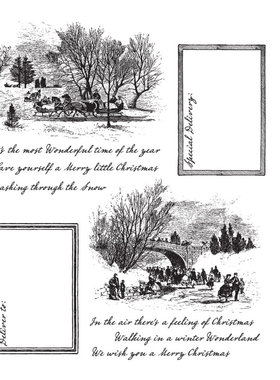 Special Delivery:
's the most Wonderful time of the year
ave yourself a Merry little Christmas
ashing through the Snow
Deliver to:
In the air there's a feeling of Christmas
Walking in a winter Wonderland
We wish you a Merry Christmas